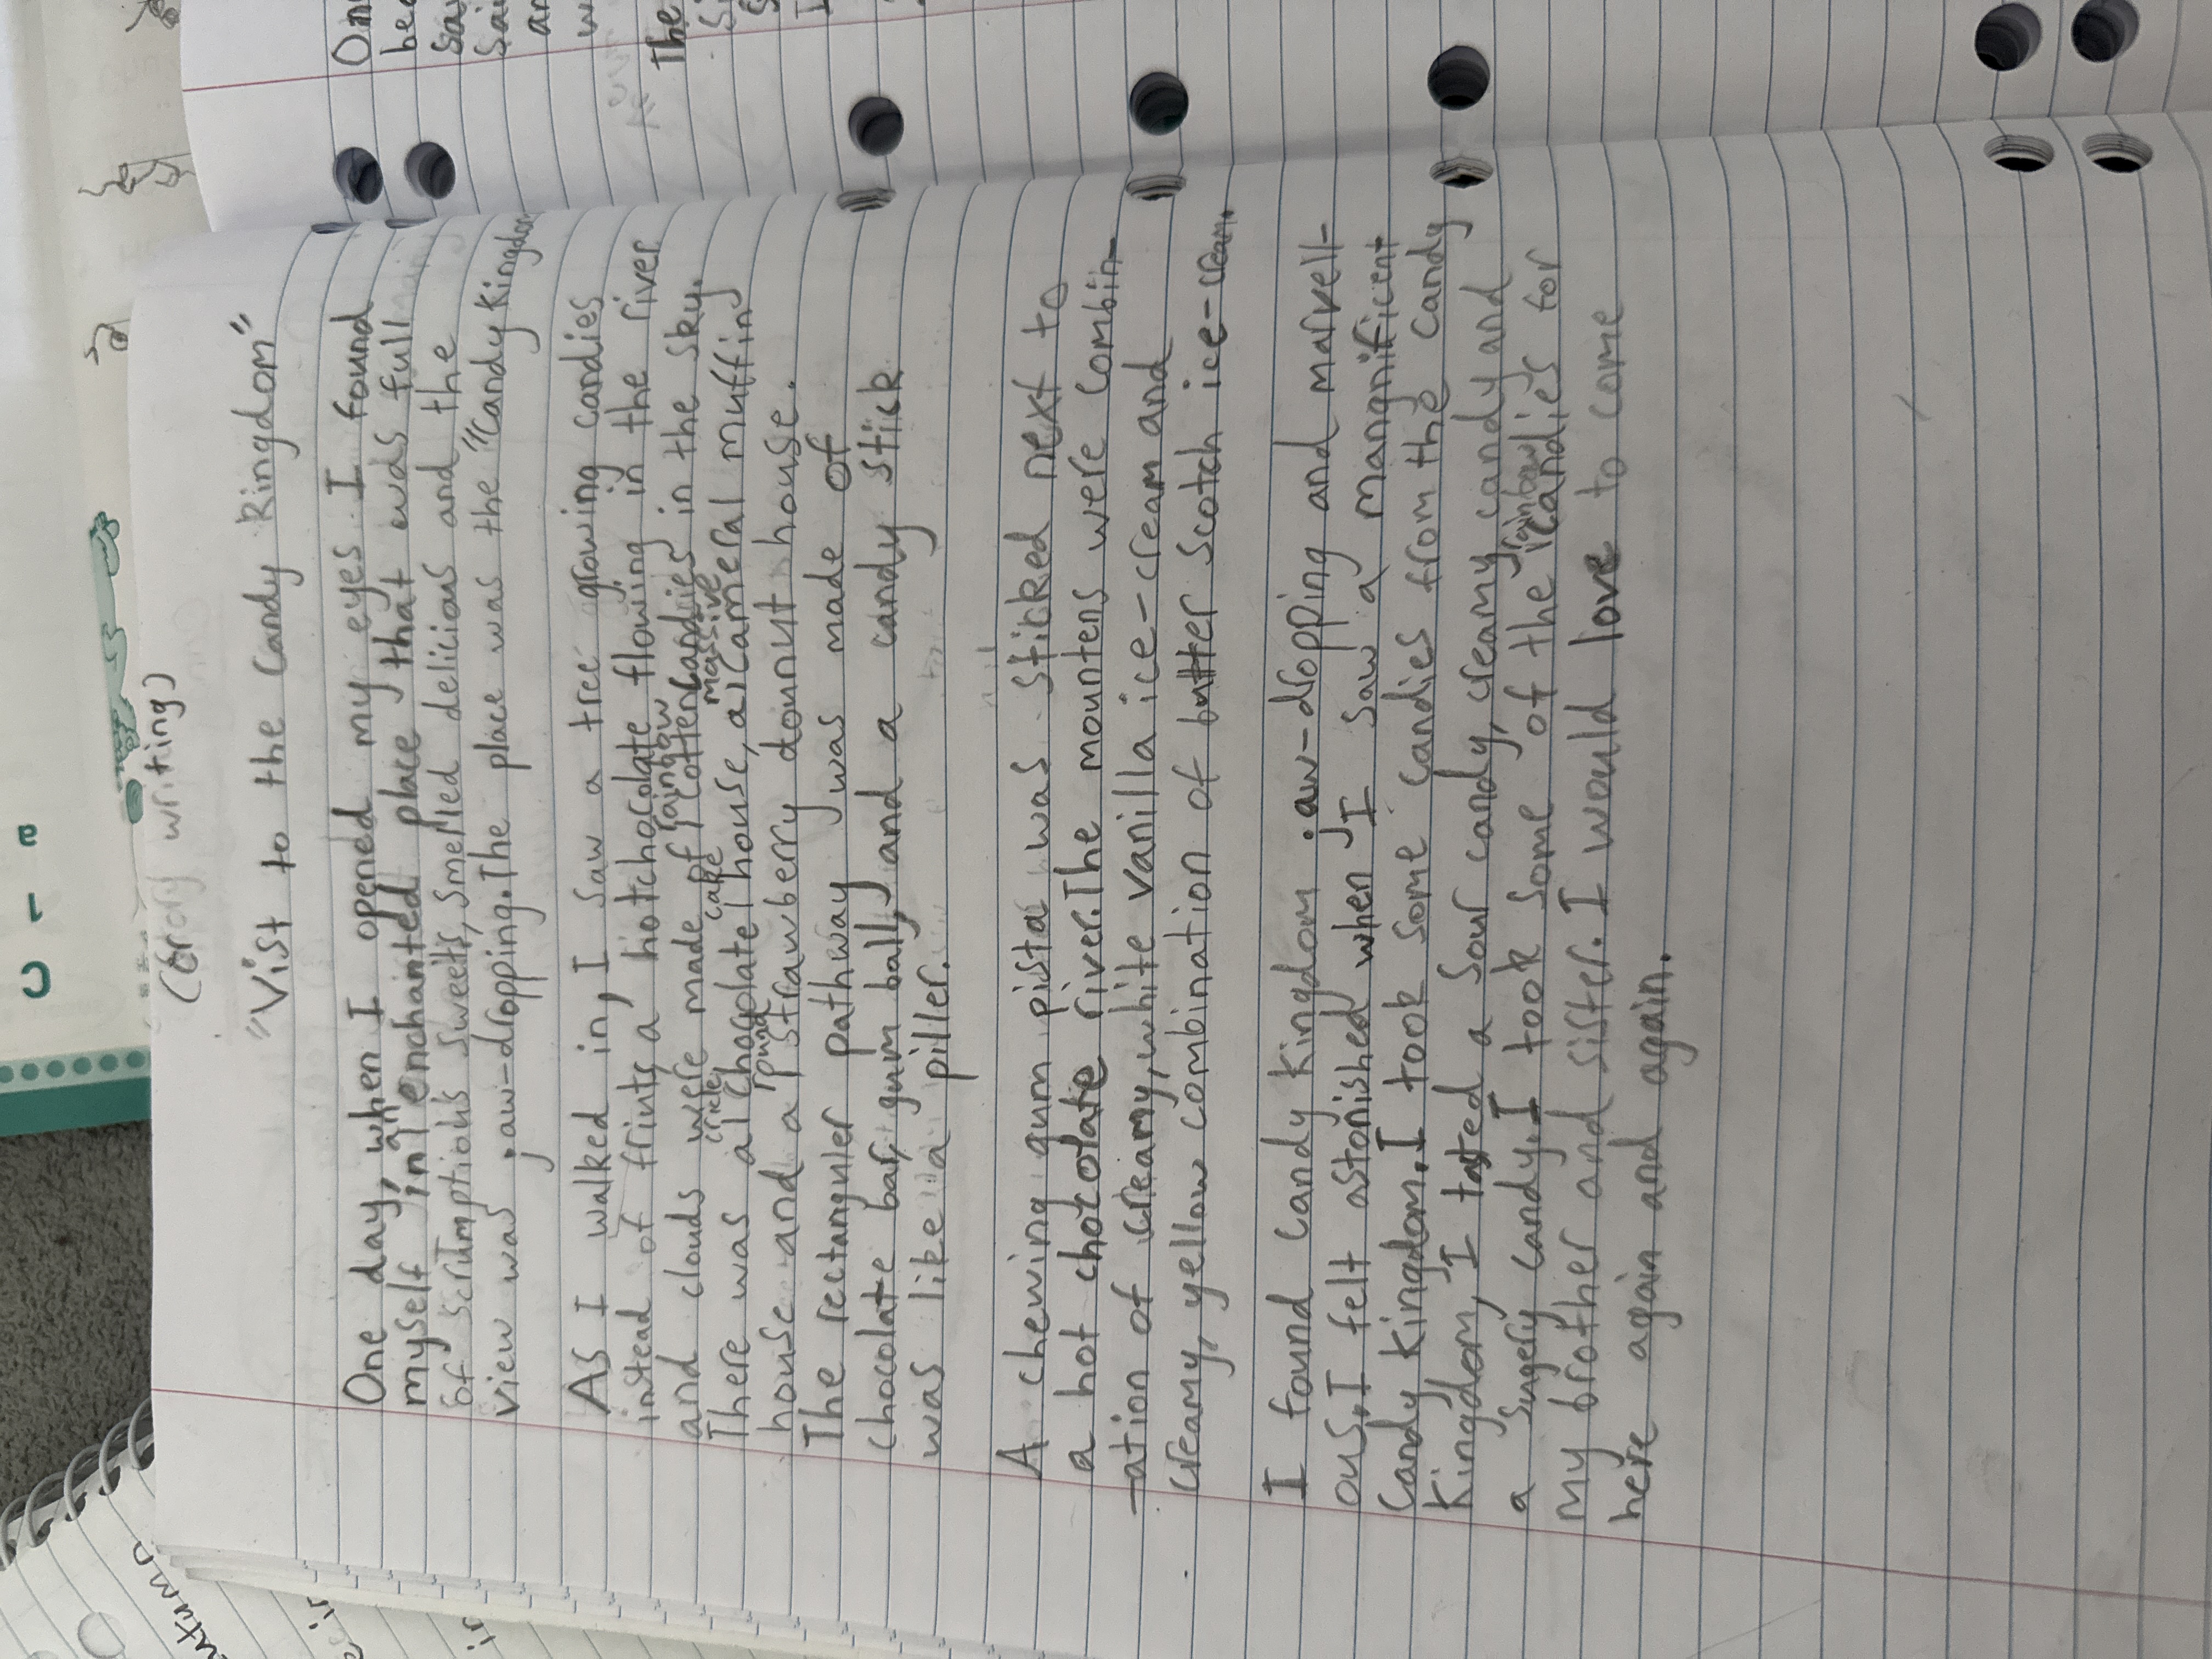 (Story writing)
"Vist to the Candy Kingdom"
One day, when I opened my eyes I found
myself in an enchainted place that was full
of scrumptious sweets, smelled delicious and the
view was jaw-dropping. The place was the "Candy Kingdom
As I walked in, I saw a tree growing candies
instead of friuts, a hot chocolate flowing in the river
and clouds were made of rainbow cotten candies in the sky.
There was a circle chocolate cake house, a massive cameral muffin
house and a round strawberry dounut house.
The rectanguler pathway was made of
chocolate bar, gum ball, and a candy stick
was like a piller.
A chewing gum pista was sticked next to
a hot chocolate river. The mountens were combin-
-ation of creamy, white vanilla ice-cream and
creamy, yellow combination of butter scotch ice-cream.
I found candy kingdom jaw-dropping and marvell-
ous. I felt astonished when I saw a mangnificent
Candy kingdom. I took some candies from the candy
kingdom, I tasted a sour candy, creamy candy and
a sugery candy. I took some of the rainbow candies for
my brother and sister. I would love to come
here again and again.